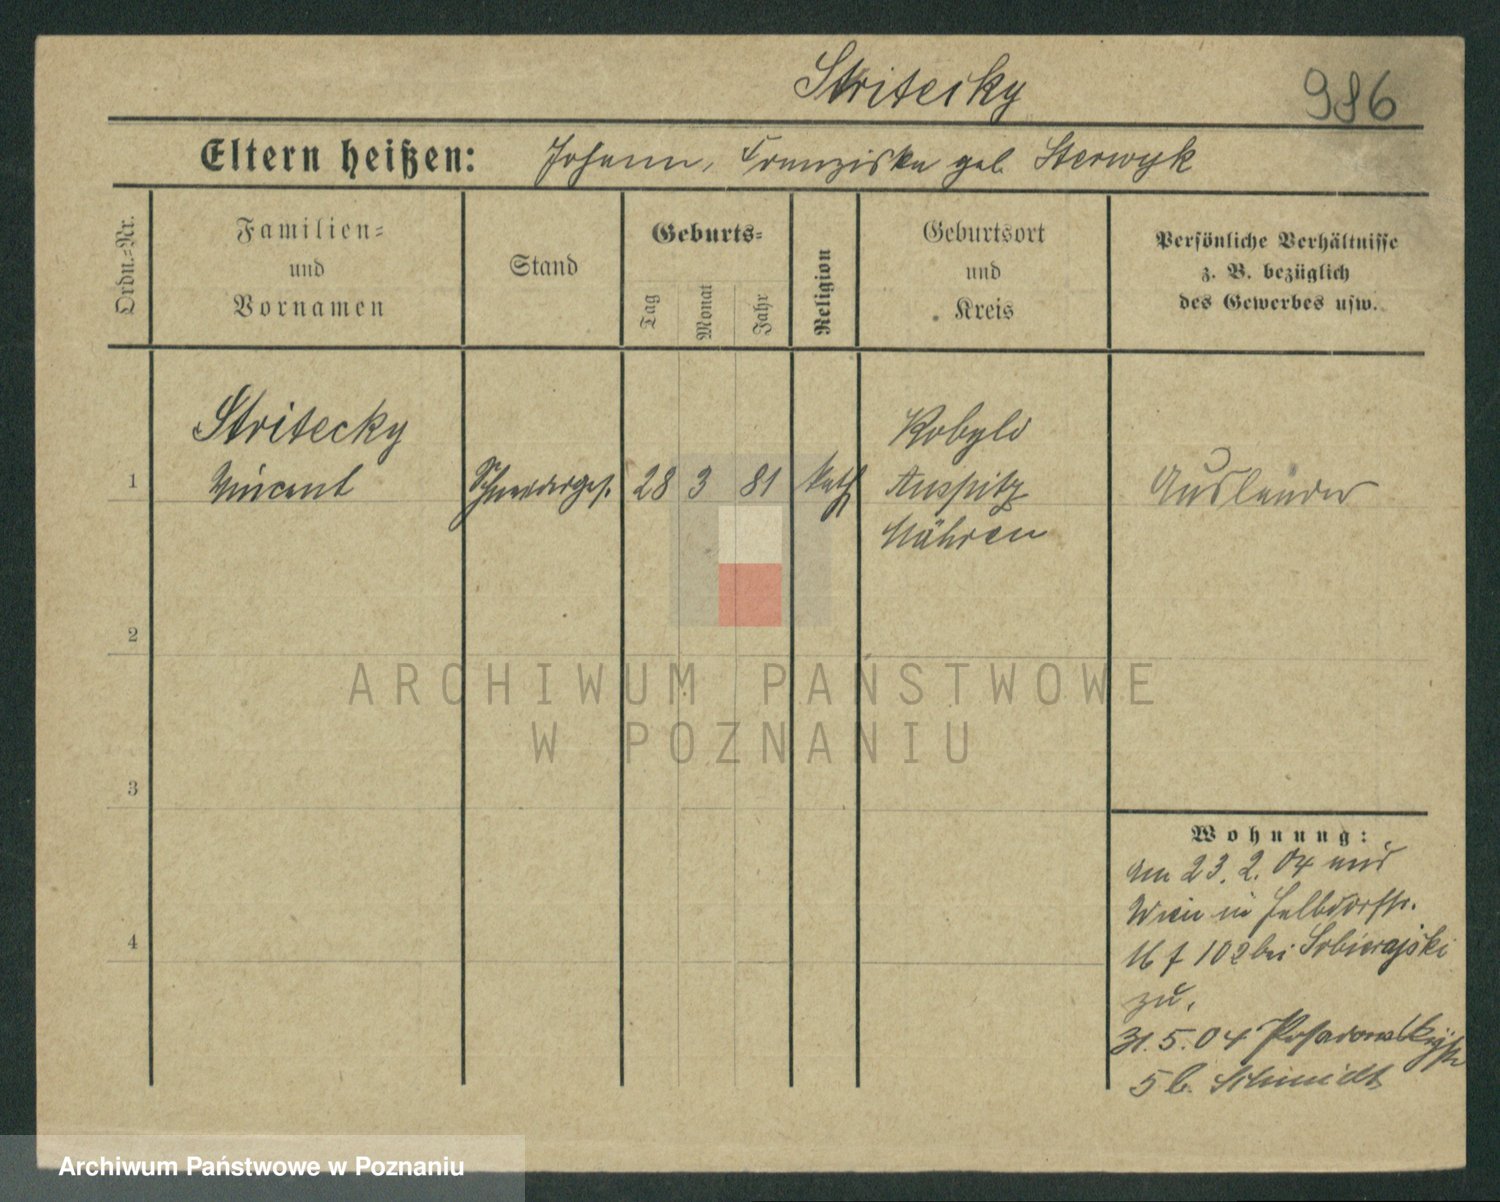 Stritecky
986
Eltern heißen: Johann, Franziska geb. Sterwyk
Ordn.-Nr.
Familien-
und
Vornamen
Stand
Geburts-
Tag
Monat
Jahr
Religion
Geburtsort
und
Kreis
Persönliche Verhältnisse
z. B. bezüglich
des Gewerbes usw.
Stritecky
1 Vincent Schneiderges. 28 3 81 kath
Kobyli
Auspitz
Mähren
Ausländer
2
3
4
Wohnung:
Am 23. 2. 04 aus
Wien in
102 bei Sobierajski
zu.
31. 5. 04
5 b. Schmidt
ARCHIWUM PAŃSTWOWE
W POZNANIU
Archiwum Państwowe w Poznaniu